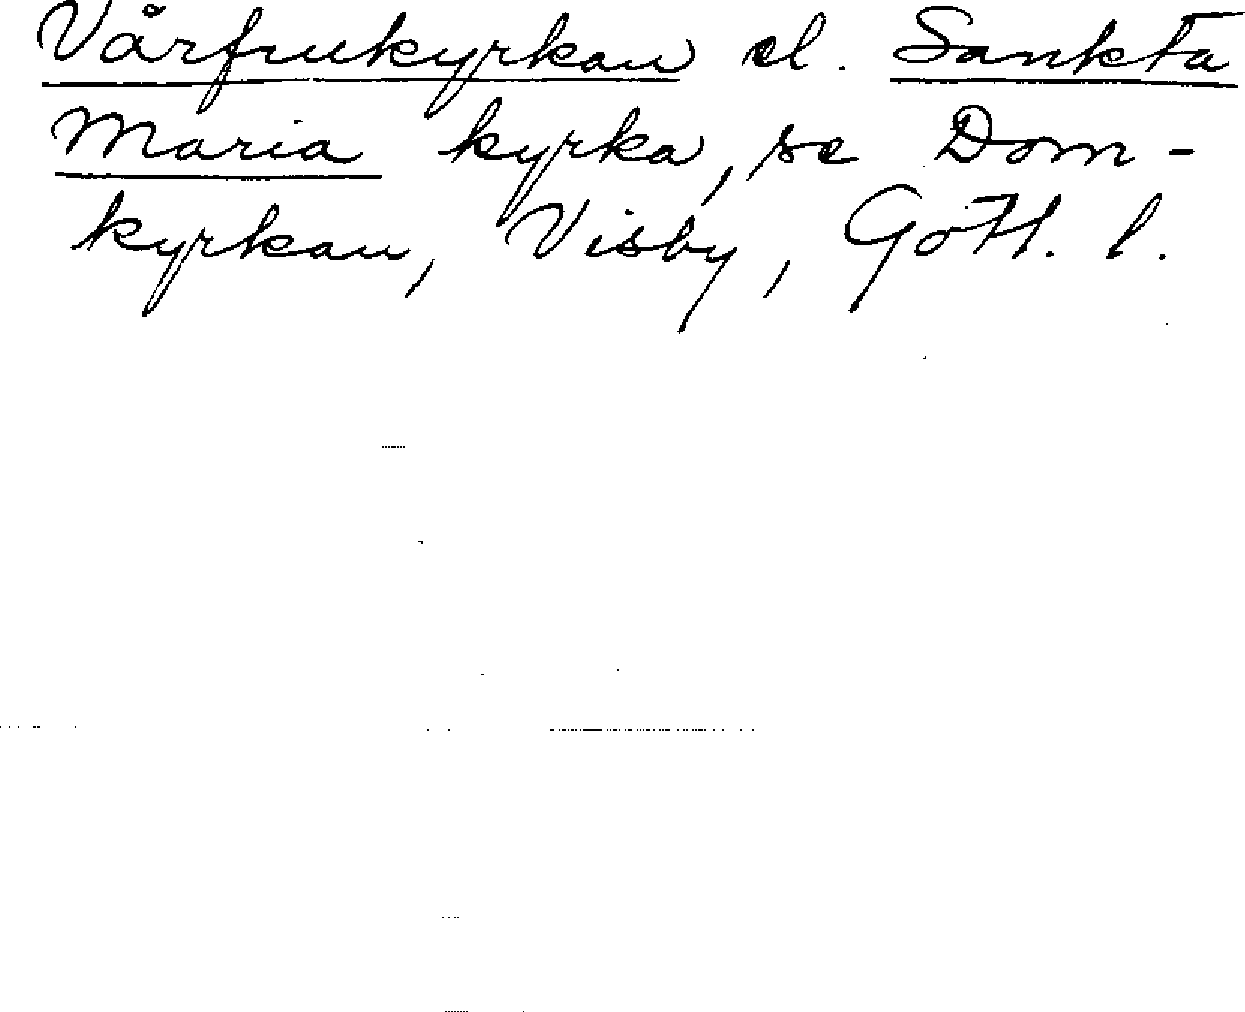 Vårfrukyrkan el. Sankta
Maria kyrka, se Dom-
kyrkan, Visby, Gotl. l.